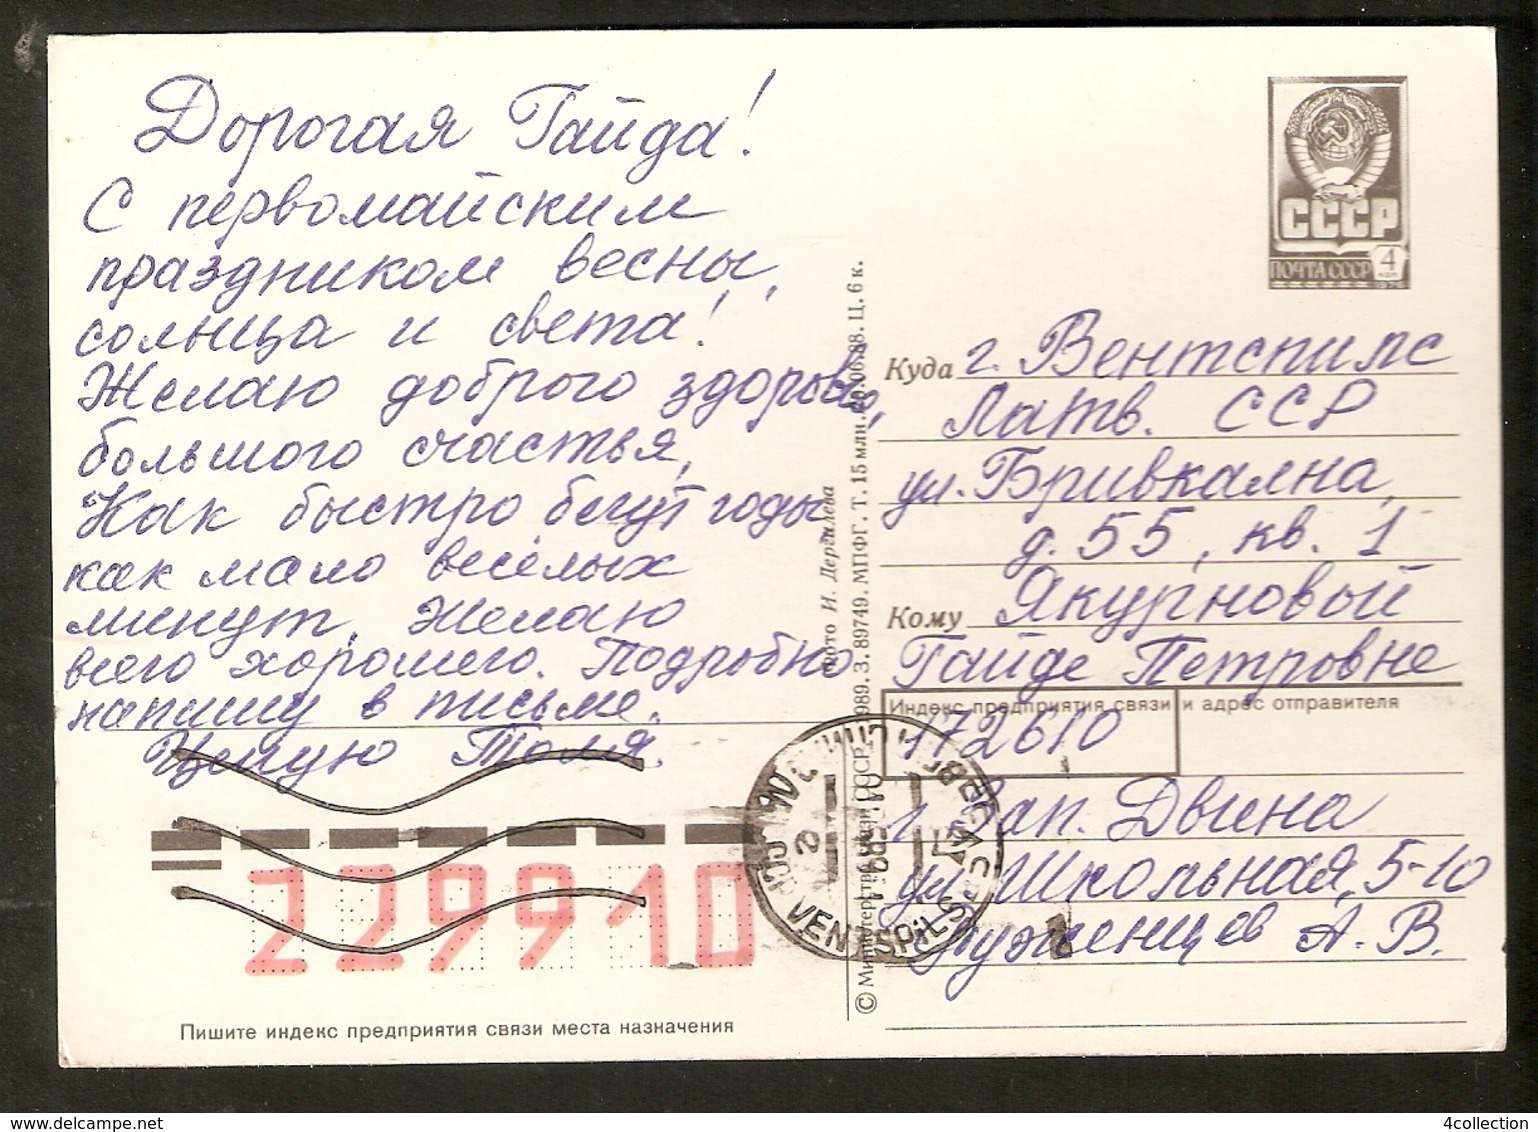 Дорогая Гайда!
С первомайским
праздником весны,
солнца и света!
Желаю доброго здоровья,
большого счастья,
Как быстро бегут годы
как мало весёлых
минут. Желаю
всего хорошего. Подробно
напишу в письме.
Целую Толя.
229910
Пишите индекс предприятия связи места назначения
Фото И. Дергилева
© Министерство связи СССР. 1989. З. 89749. МПФГ. Т. 15 млн. 06.88. Ц. 6 к.
СССР
ПОЧТА СССР 4 коп
1976
Куда г. Вентспилс
Латв. ССР
ул. Бривкална,
д. 55, кв. 1
Кому Якурновый
Гайде Петровне
Индекс предприятия связи и адрес отправителя
172610
г. Зап. Двина
ул. Школьная, 5-10
А. В.
VENTSPILS
4collection